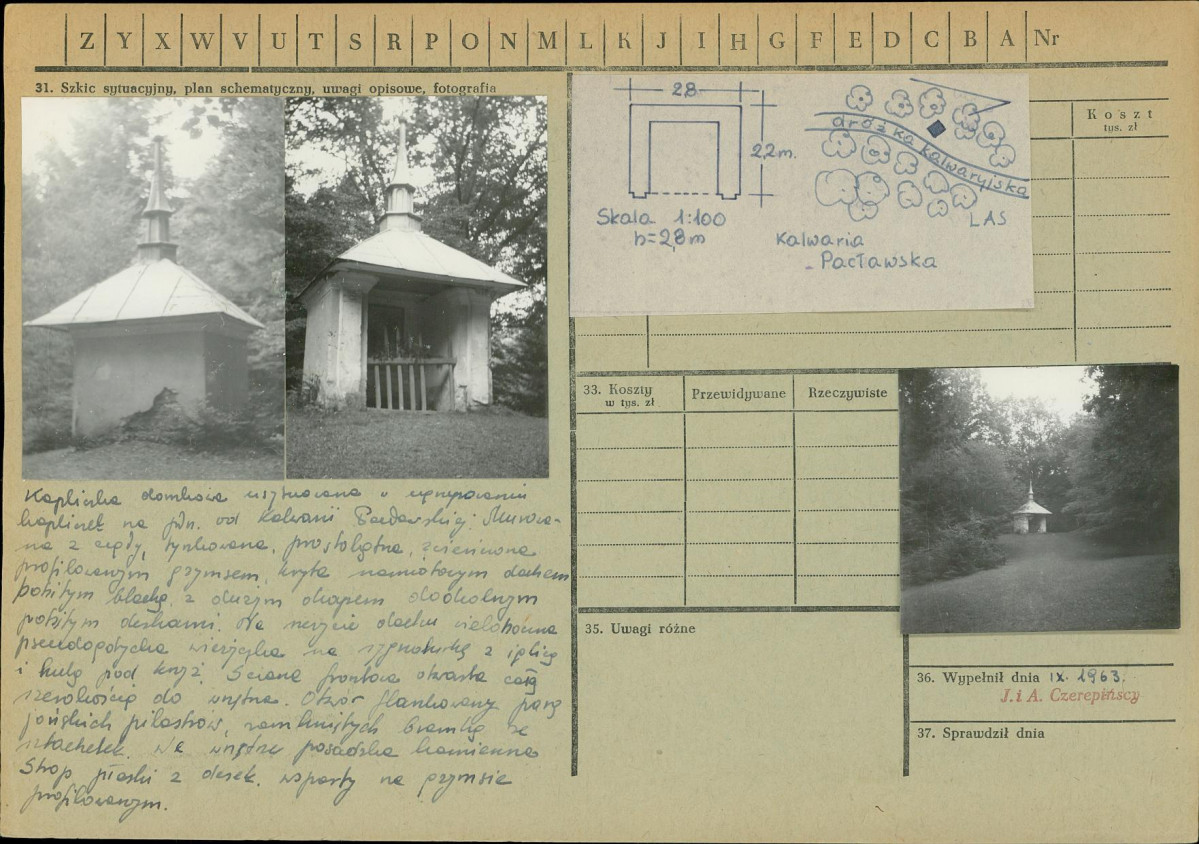 Z Y X W V U T S R P O N M L K J I H G F E D C B A Nr
31. Szkic sytuacyjny, plan schematyczny, uwagi opisowe, fotografia
Kapliczka domkowa usytuowana w ugrupowaniu
kapliczek na płn. od Kalwarii Pacławskiej. Murowa-
na z cegły, tynkowana, prostokątna, zwieńczona
profilowanym gzymsem, kryta namiotowym dachem
pobitym blachą, z dużym okapem dookolnym
pobitym deskami. Na szczycie dachu wieloboczna
pseudogotycka wieżyczka na sygnaturkę z iglicą
i kulą pod krzyż. Ściana frontowa otwarta całą
szerokością do wnętrza. Otwór flankowany parą
jońskich pilastrów, zamkniętych bramką ze
sztachetek. We wnętrzu posadzka kamienna
Strop płaski z desek, wsparty na gzymsie
profilowanym.
2.8
2.2 m.
Skala 1:100
h=2,8 m
dróżka kalwaryjska
LAS
Kalwaria
Pacławska
Koszt
tys. zł
33. Koszty
w tys. zł
Przewidywane
Rzeczywiste
35. Uwagi różne
36. Wypełnił dnia IX. 1963.
J. i A. Czerepińscy
37. Sprawdził dnia